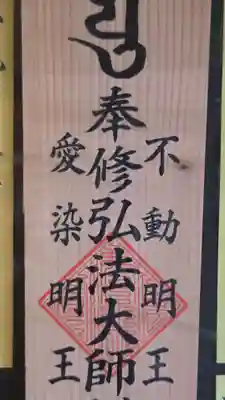 不動明王
奉修弘法大師
愛染明王